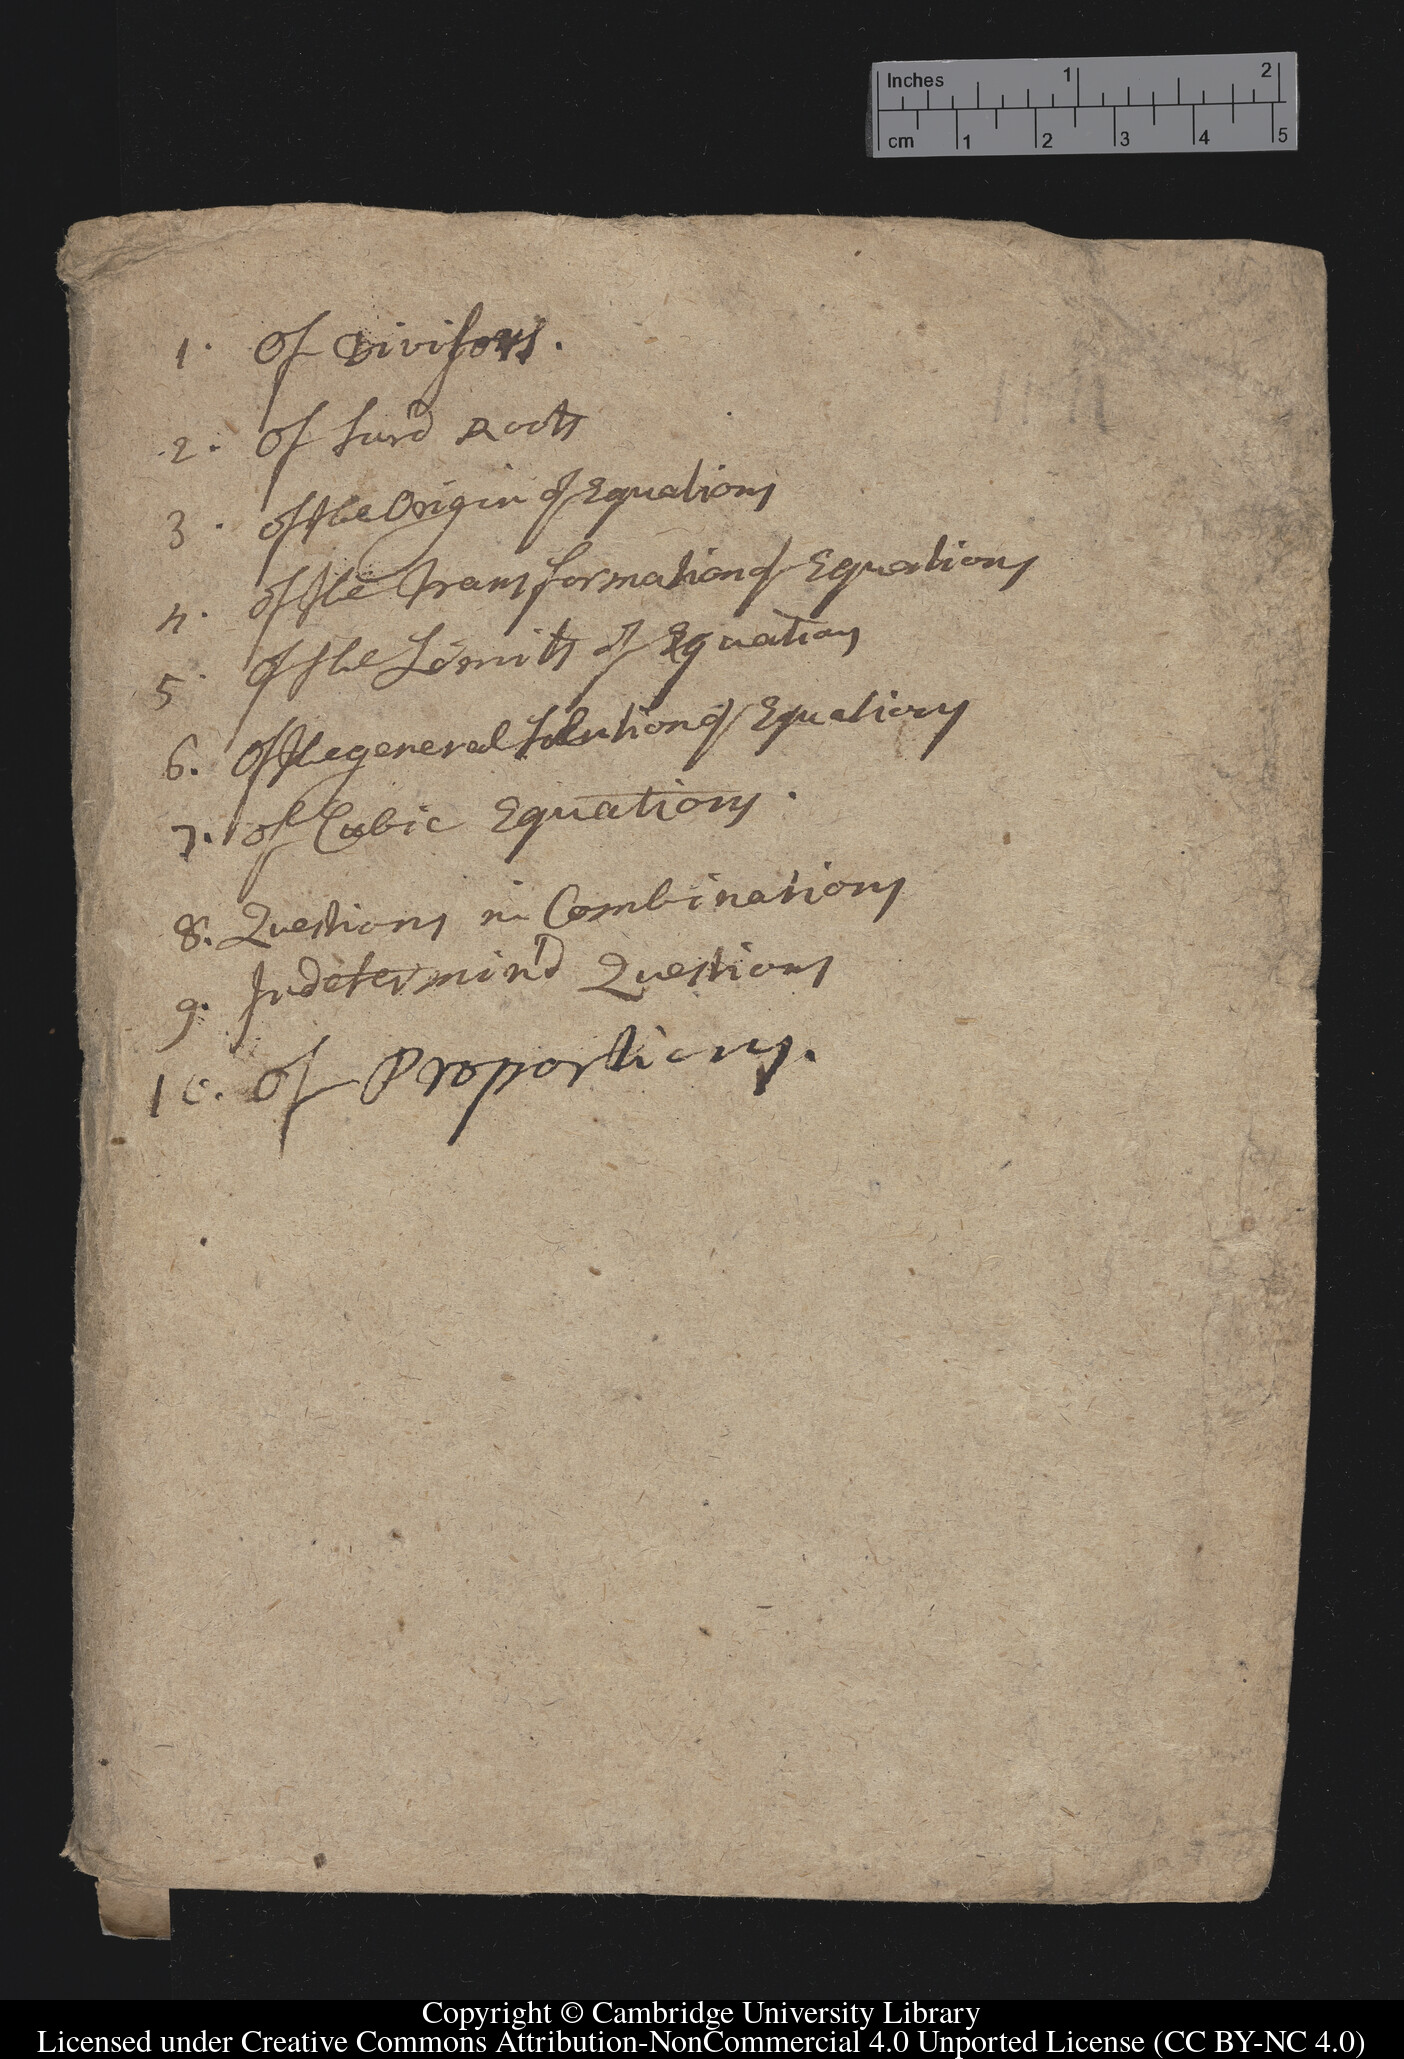 Inches 1 2
cm 1 2 3 4 5
1. Of Divisors.
2. Of Surd Roots
3. Of the Origin of Equations
4. Of the Transformation of Equations
5. Of the Limits of Equations
6. Of the general Solution of Equations
7. Of Cubic Equations.
8. Questions in Combinations
9. Indetermin'd Questions
10. Of Proportions.
Copyright © Cambridge University Library
Licensed under Creative Commons Attribution-NonCommercial 4.0 Unported License (CC BY-NC 4.0)